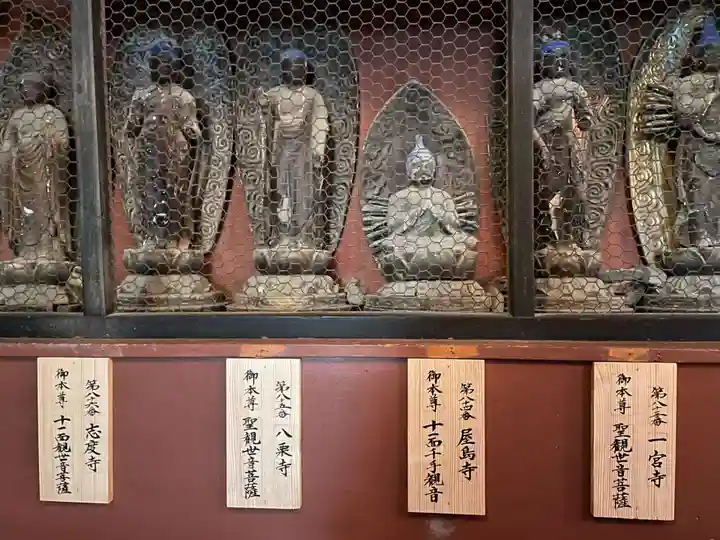 第八三番 一宮寺
御本尊 聖観世音菩薩
第八四番 屋島寺
御本尊 十一面千手観音
第八五番 八栗寺
御本尊 聖観世音菩薩
第八六番 志度寺
御本尊 十一面観世音菩薩